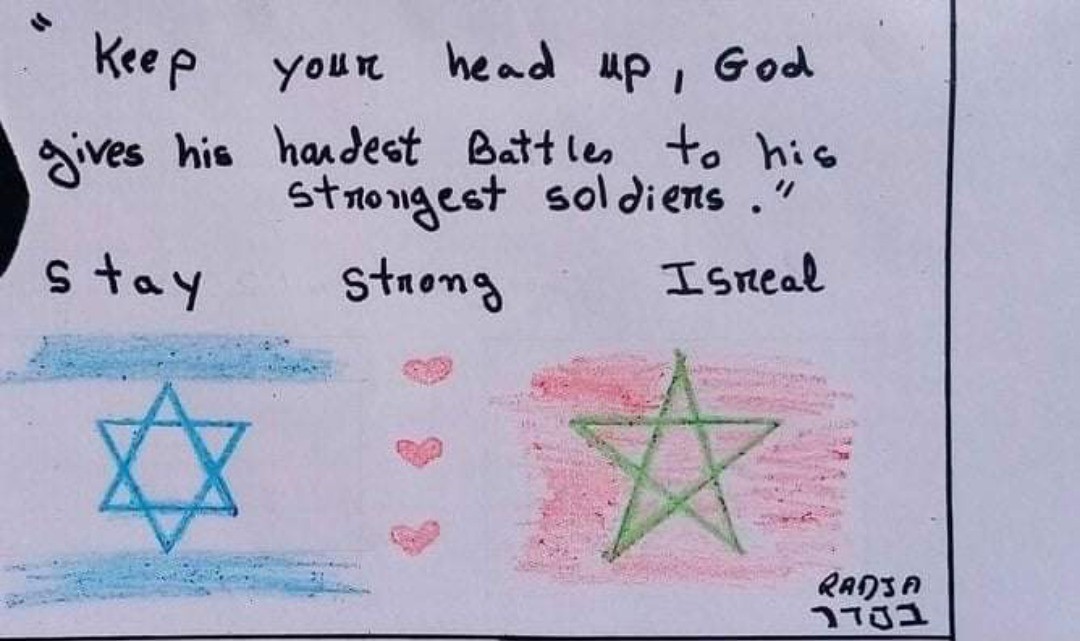 "Keep your head up, God
gives his hardest Battles to his
strongest soldiers."
stay strong Isreal
RADJA